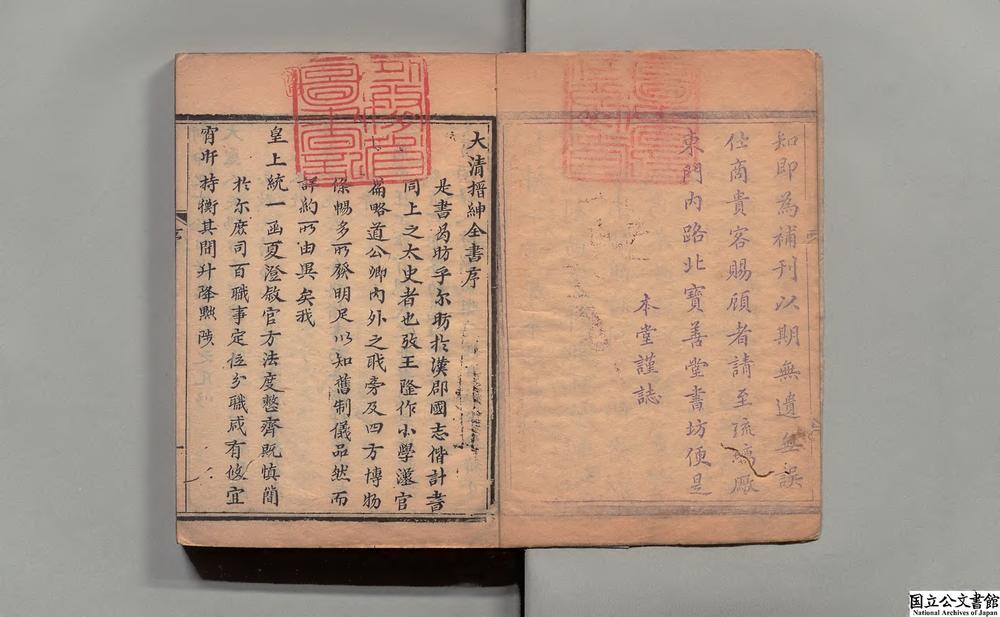 知即為補刊以期無遺無誤
仕商貴客賜顧者請至琉璃厰
東門內路北寶善堂書坊便是
本堂謹誌
大清搢紳全書序
是書曷昉乎尔昉扵漢郡國志偕計書
同上之太史者也攷王隆作小學漢官
篇略道公卿內外之職旁及四方博物
條暢多所發明足以知舊制儀品然而
詳約所由異矣我
皇上統一函夏澄敘官方法度整齊既慎簡
扵尔庶司百職事定位分職咸有攸宜
宵旰持衡其間升降黜陟
序
国立公文書館
National Archives of Japan